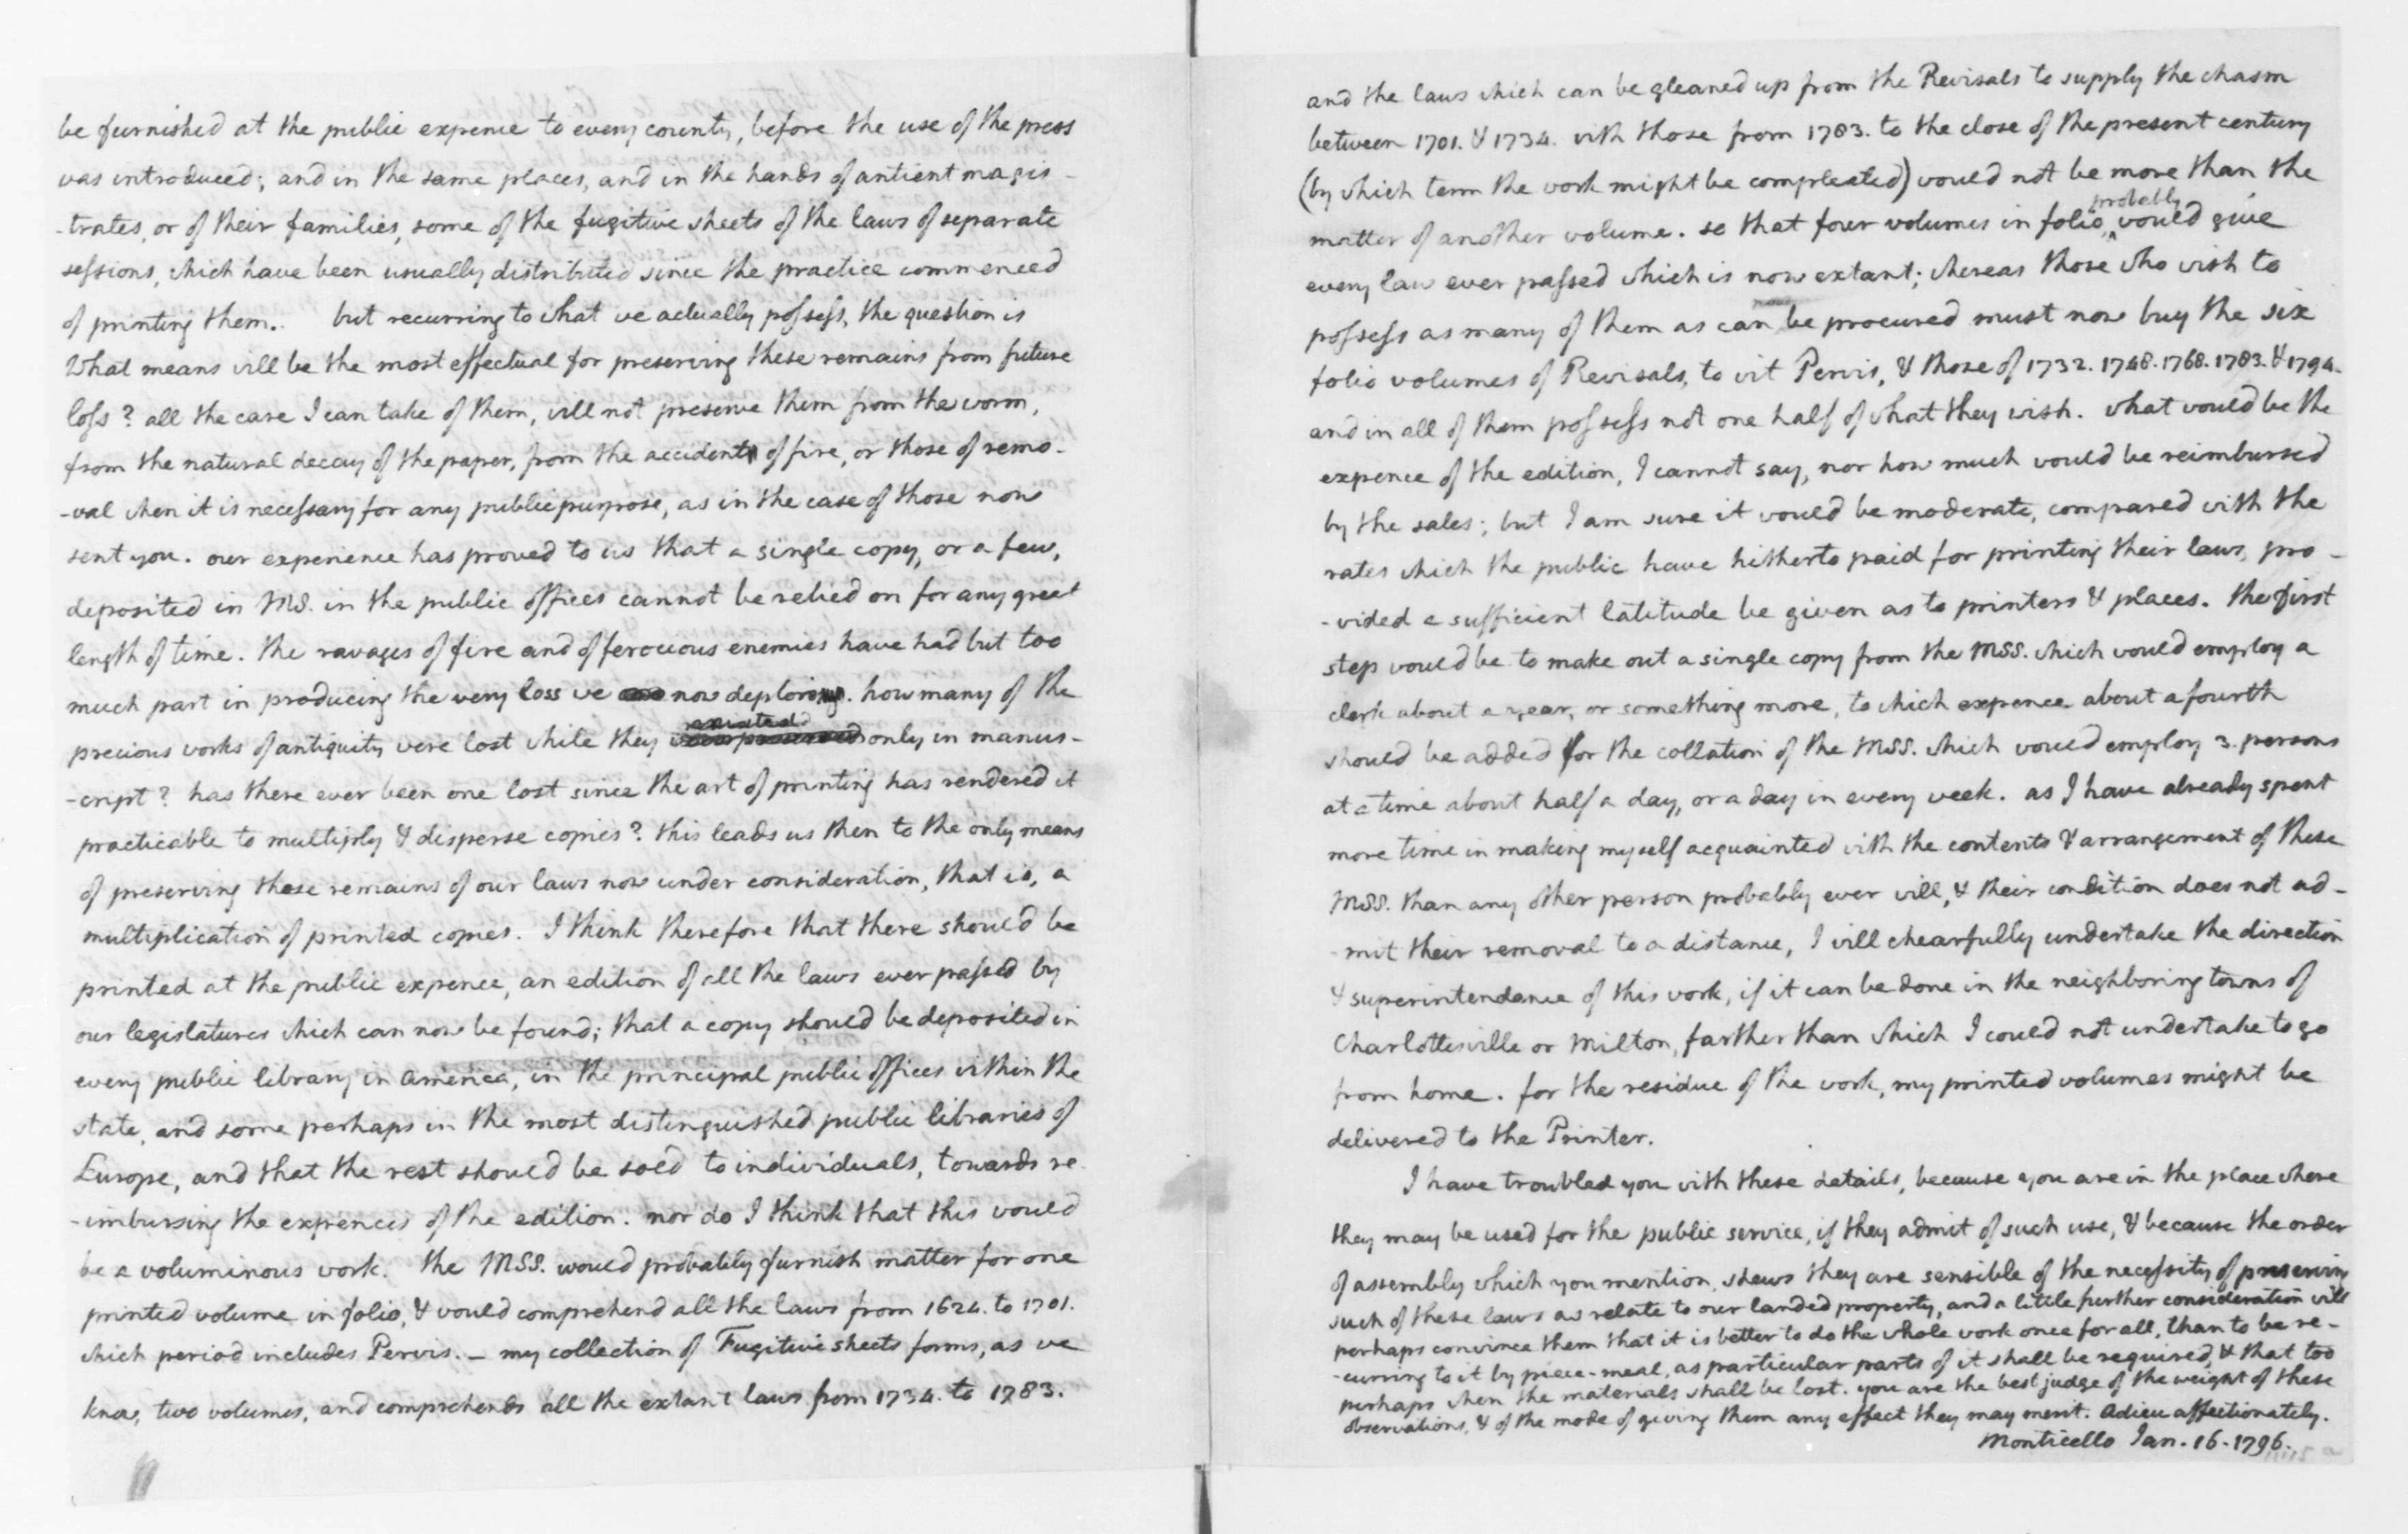 be furnished at the public expence to every county, before the use of the press
was introduced; and in the same places, and in the hands of antient magis-
-trates, or of their families, some of the fugitive sheets of the laws of separate
sessions, which have been usually distributed since the practice commenced
of printing them. but recurring to what we actually possess, the question is
What means will be the most effectual for preserving these remains from future
loss? all the care I can take of them, will not preserve them from the worm,
from the natural decay of the paper, from the accidents of fire, or those of remo-
-val when it is necessary for any public purpose, as in the case of those now
sent you. our experience has proved to us that a single copy, or a few,
deposited in MS. in the public offices cannot be relied on for any great
length of time. the ravages of fire and of ferocious enemies have had but too
much part in producing the very loss we now deplore. how many of the
precious works of antiquity were lost while they existed only in manus-
-cript? has there ever been one lost since the art of printing has rendered it
practicable to multiply & disperse copies? this leads us then to the only means
of preserving those remains of our laws now under consideration, that is, a
multiplication of printed copies. I think therefore that there should be
printed at the public expence, an edition of all the laws ever passed by
our legislatures which can now be found; that a copy should be deposited in
every public library in America, in the principal public offices within the
state, and some perhaps in the most distinguished public libraries of
Europe, and that the rest should be sold to individuals, towards re-
-imbursing the expences of the edition. nor do I think that this would
be a voluminous work. the MSS. would probably furnish matter for one
printed volume in folio, & would comprehend all the laws from 1624. to 1701.
which period includes Pervis. – my collection of Fugitive sheets forms, as we
know, two volumes, and comprehends all the extant laws from 1734. to 1783.
and the laws which can be gleaned up from the Revisals to supply the chasm
between 1701. & 1734. with those from 1783. to the close of the present century
(by which term the work might be compleated) would not be more than the
matter of another volume. so that four volumes in folio, probably would give
every law ever passed which is now extant; whereas those who wish to
possess as many of them as can be procured must now buy the six
folio volumes of Revisals, to wit Pervis, & those of 1732. 1748. 1768. 1783. & 1794.
and in all of them possess not one half of what they wish. what would be the
expence of the edition, I cannot say, nor how much would be reimbursed
by the sales; but I am sure it would be moderate, compared with the
rates which the public have hitherto paid for printing their laws, pro-
-vided a sufficient latitude be given as to printers & places. the first
step would be to make out a single copy from the MSS. which would employ a
clerk about a year, or something more, to which expence about a fourth
should be added for the collation of the MSS. which would employ 3. persons
at a time about half a day, or a day in every week. as I have already spent
more time in making myself acquainted with the contents & arrangement of these
MSS. than any other person probably ever will, & their condition does not ad-
-mit their removal to a distance, I will chearfully undertake the direction
& superintendance of this work, if it can be done in the neighboring towns of
Charlottesville or Milton, farther than which I could not undertake to go
from home. for the residue of the work, my printed volumes might be
delivered to the Printer.
I have troubled you with these details, because you are in the place where
they may be used for the public service, if they admit of such use, & because the order
of assembly which you mention, shews they are sensible of the necessity of preserving
such of these laws as relate to our landed property, and a little further consideration will
perhaps convince them that it is better to do the whole work once for all, than to be re-
-curring to it by piece-meal, as particular parts of it shall be required, & that too
perhaps when the materials shall be lost. you are the best judge of the weight of these
observations, & of the mode of giving them any effect they may merit. Adieu affectionately.
Monticello Jan. 16. 1796.